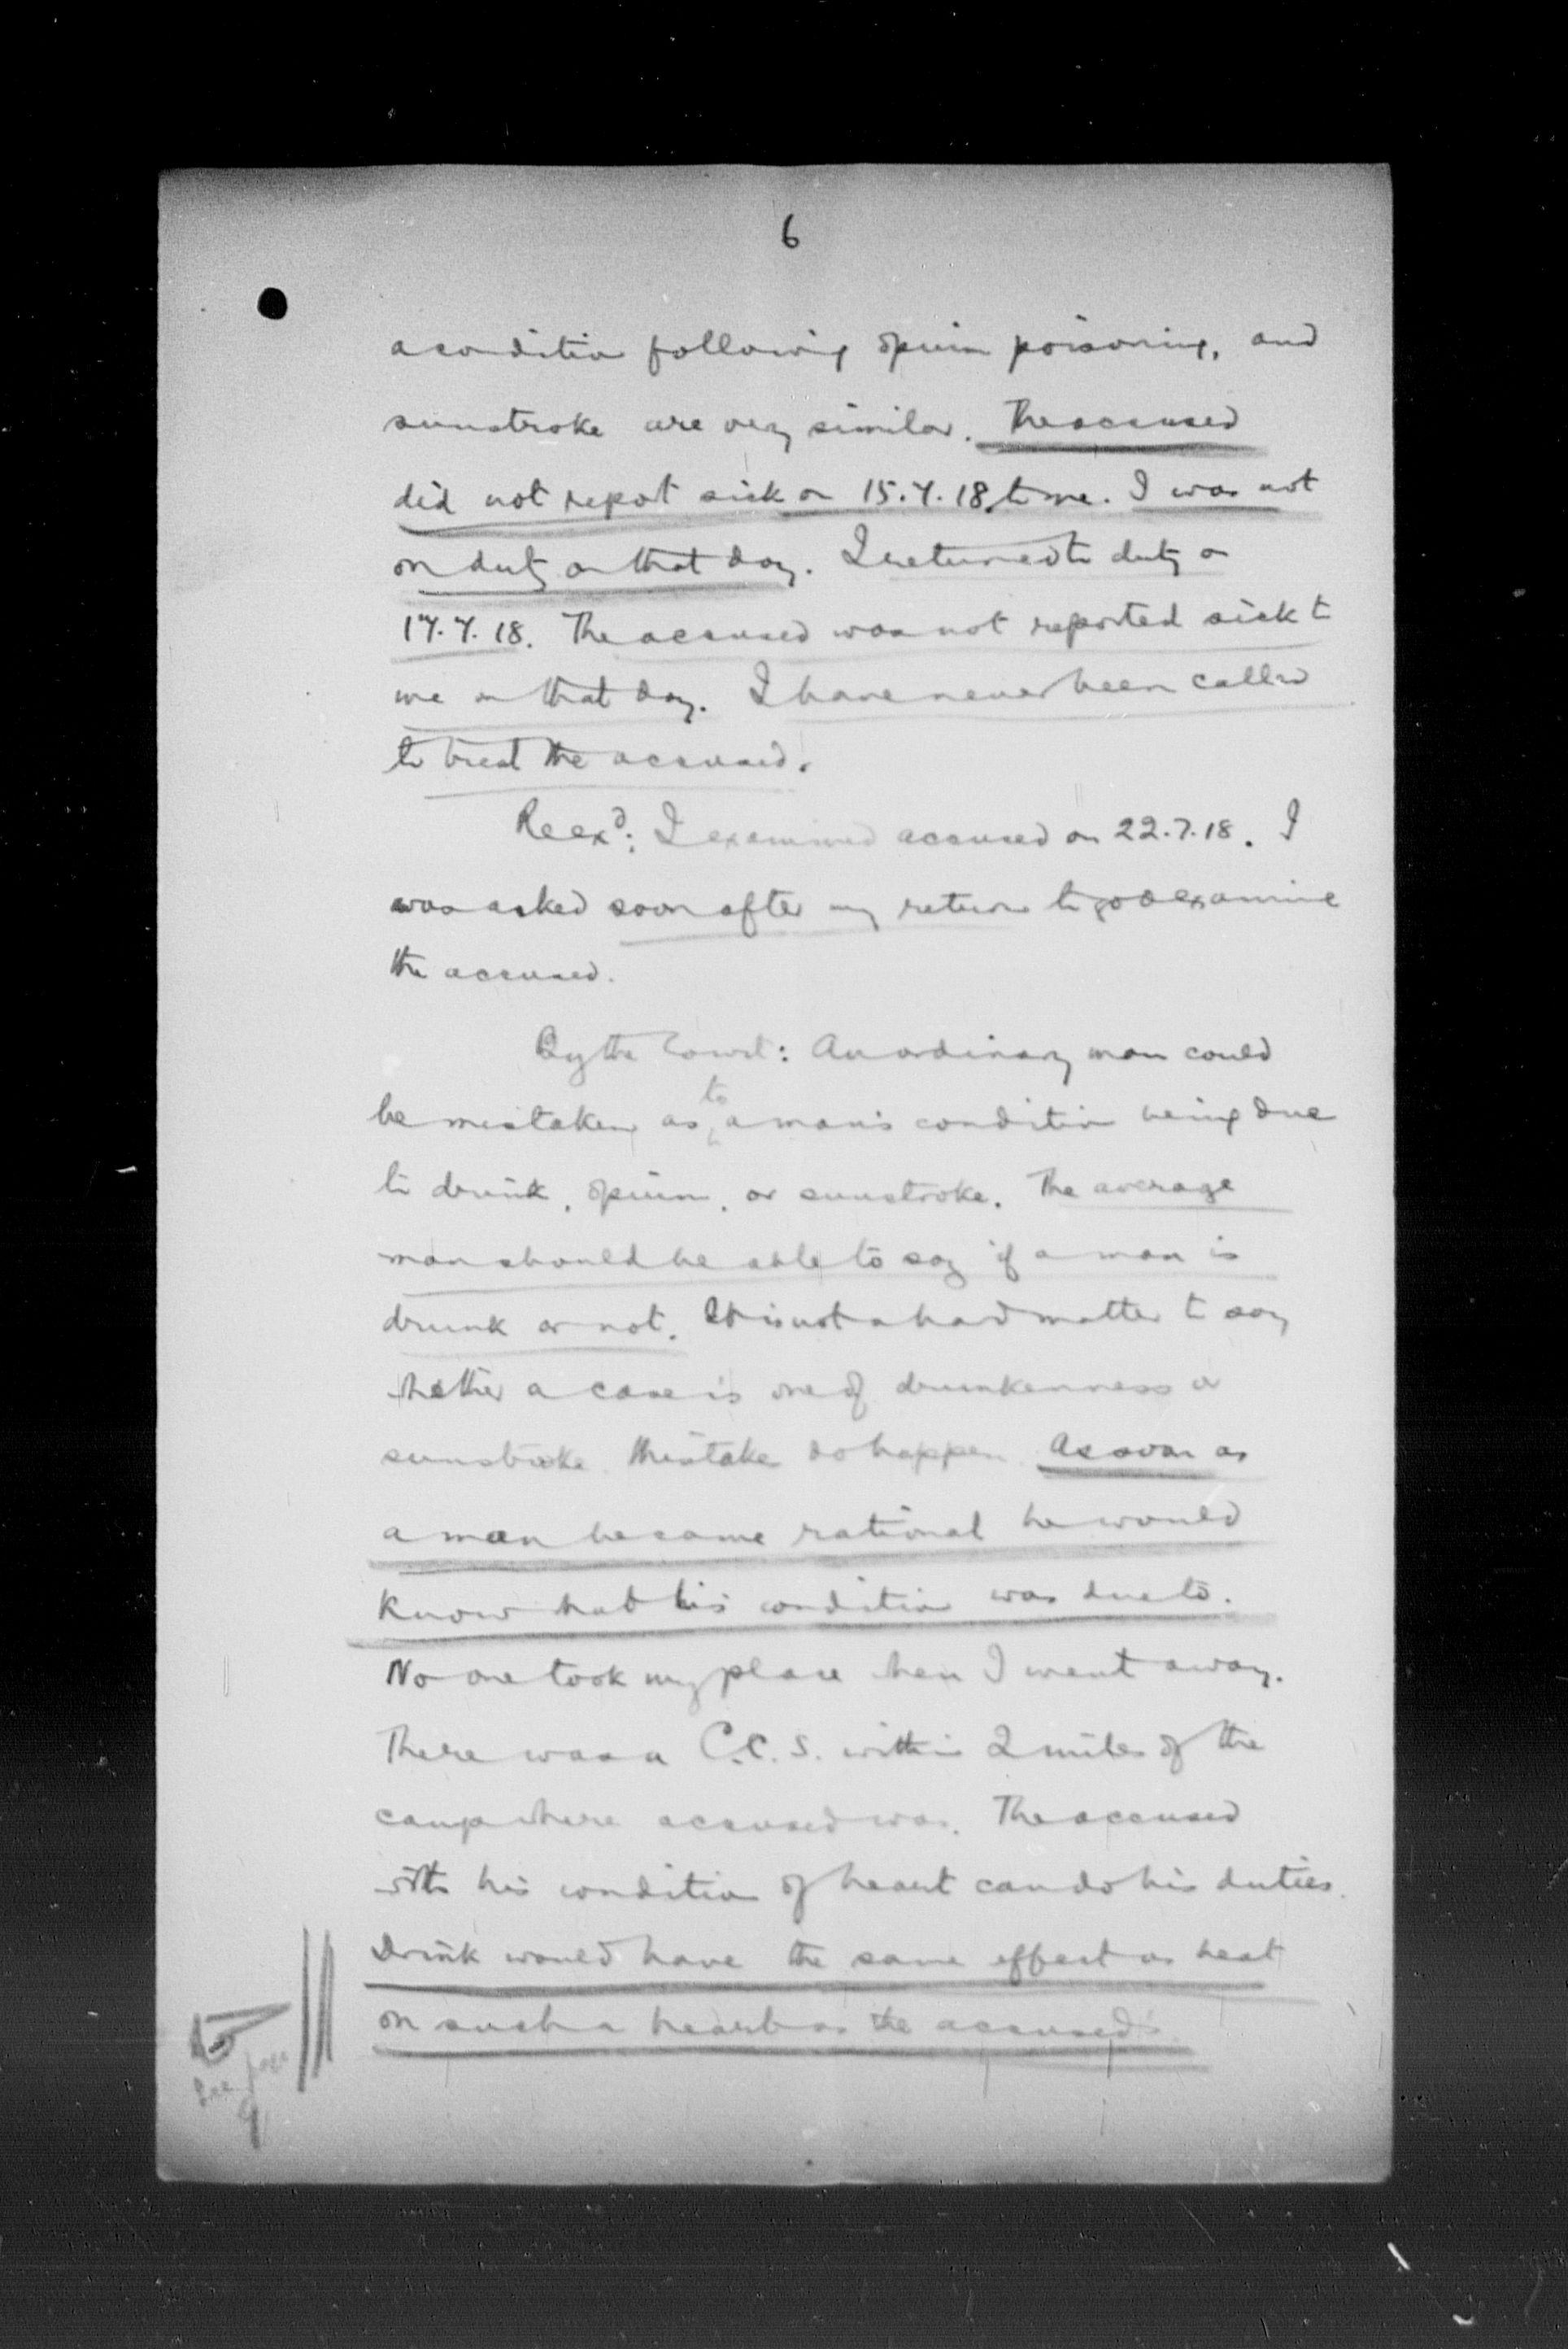 6
a condition following opium poisoning, and
sunstroke are very similar. The accused
did not report sick on 15.7.18 to me. I was not
on duty on that day. I returned to duty on
17.7.18. The accused was not reported sick to
me on that day. I have never been called
to treat the accused.
Reexd: I examined accused on 22.7.18. I
was asked soon after my return to go & examine
the accused.
By the Court: An ordinary man could
be mistaken as to a man's condition being due
to drink, opium, or sunstroke. The average
man should be able to say if a man is
drunk or not. It is not a hard matter to say
whether a case is one of drunkenness or
sunstroke. Mistake do happen. As soon as
a man became rational he would
know what his condition was due to.
No one took my place when I went away.
There was a C.C.S. within 2 miles of the
camp where accused was. The accused
with his condition of heart can do his duties.
Drink would have the same effect as heat
on such a heart as the accused's.
See page
9